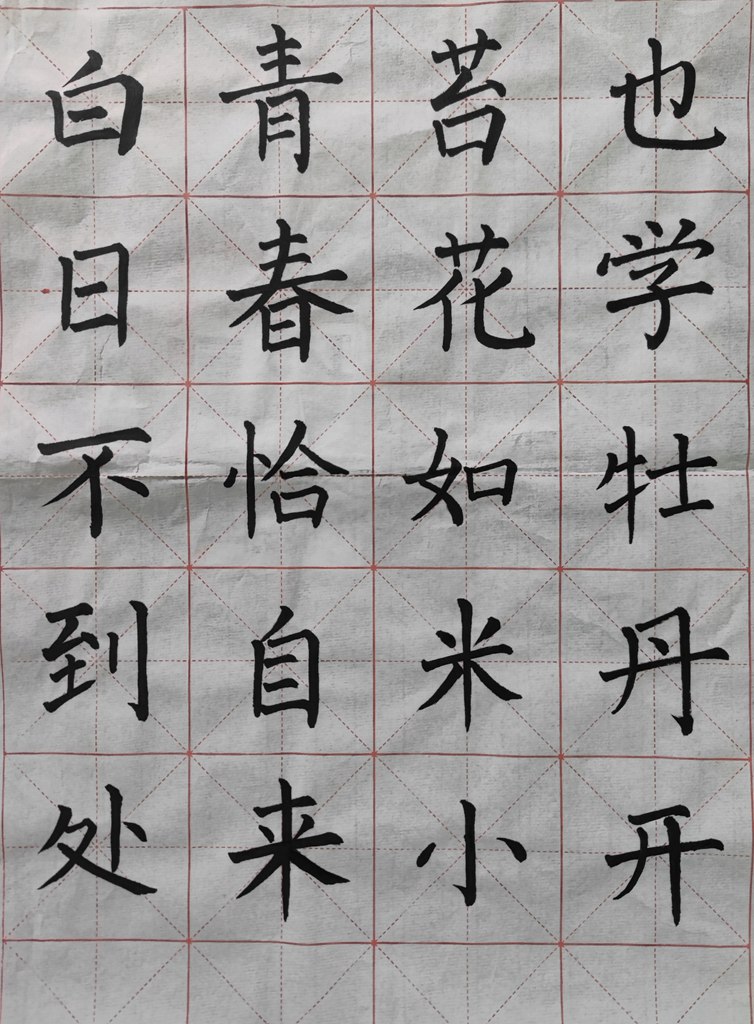 白日不到处
青春恰自来
苔花如米小
也学牡丹开